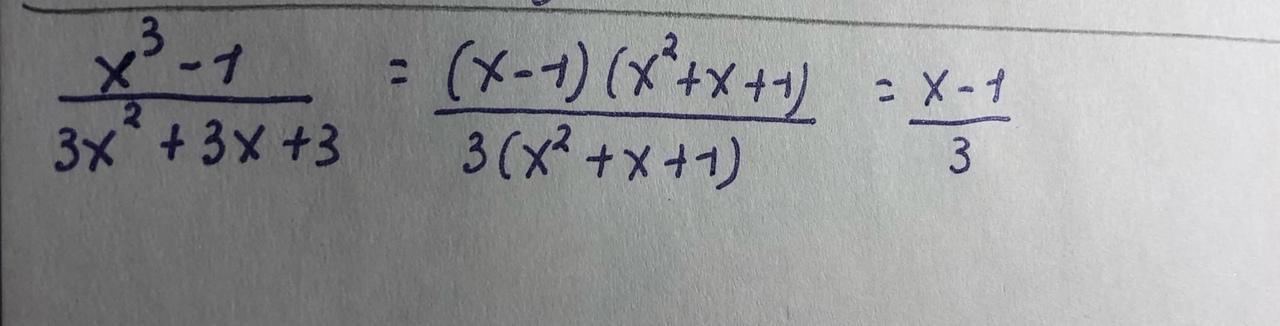 x³-1 / 3x²+3x+3 = (x-1)(x²+x+1) / 3(x²+x+1) = x-1 / 3